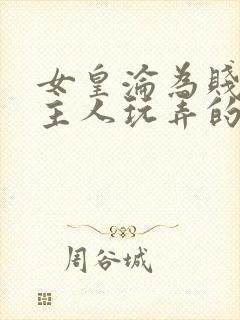 女皇淪為賤
主人玩弄的
周谷城